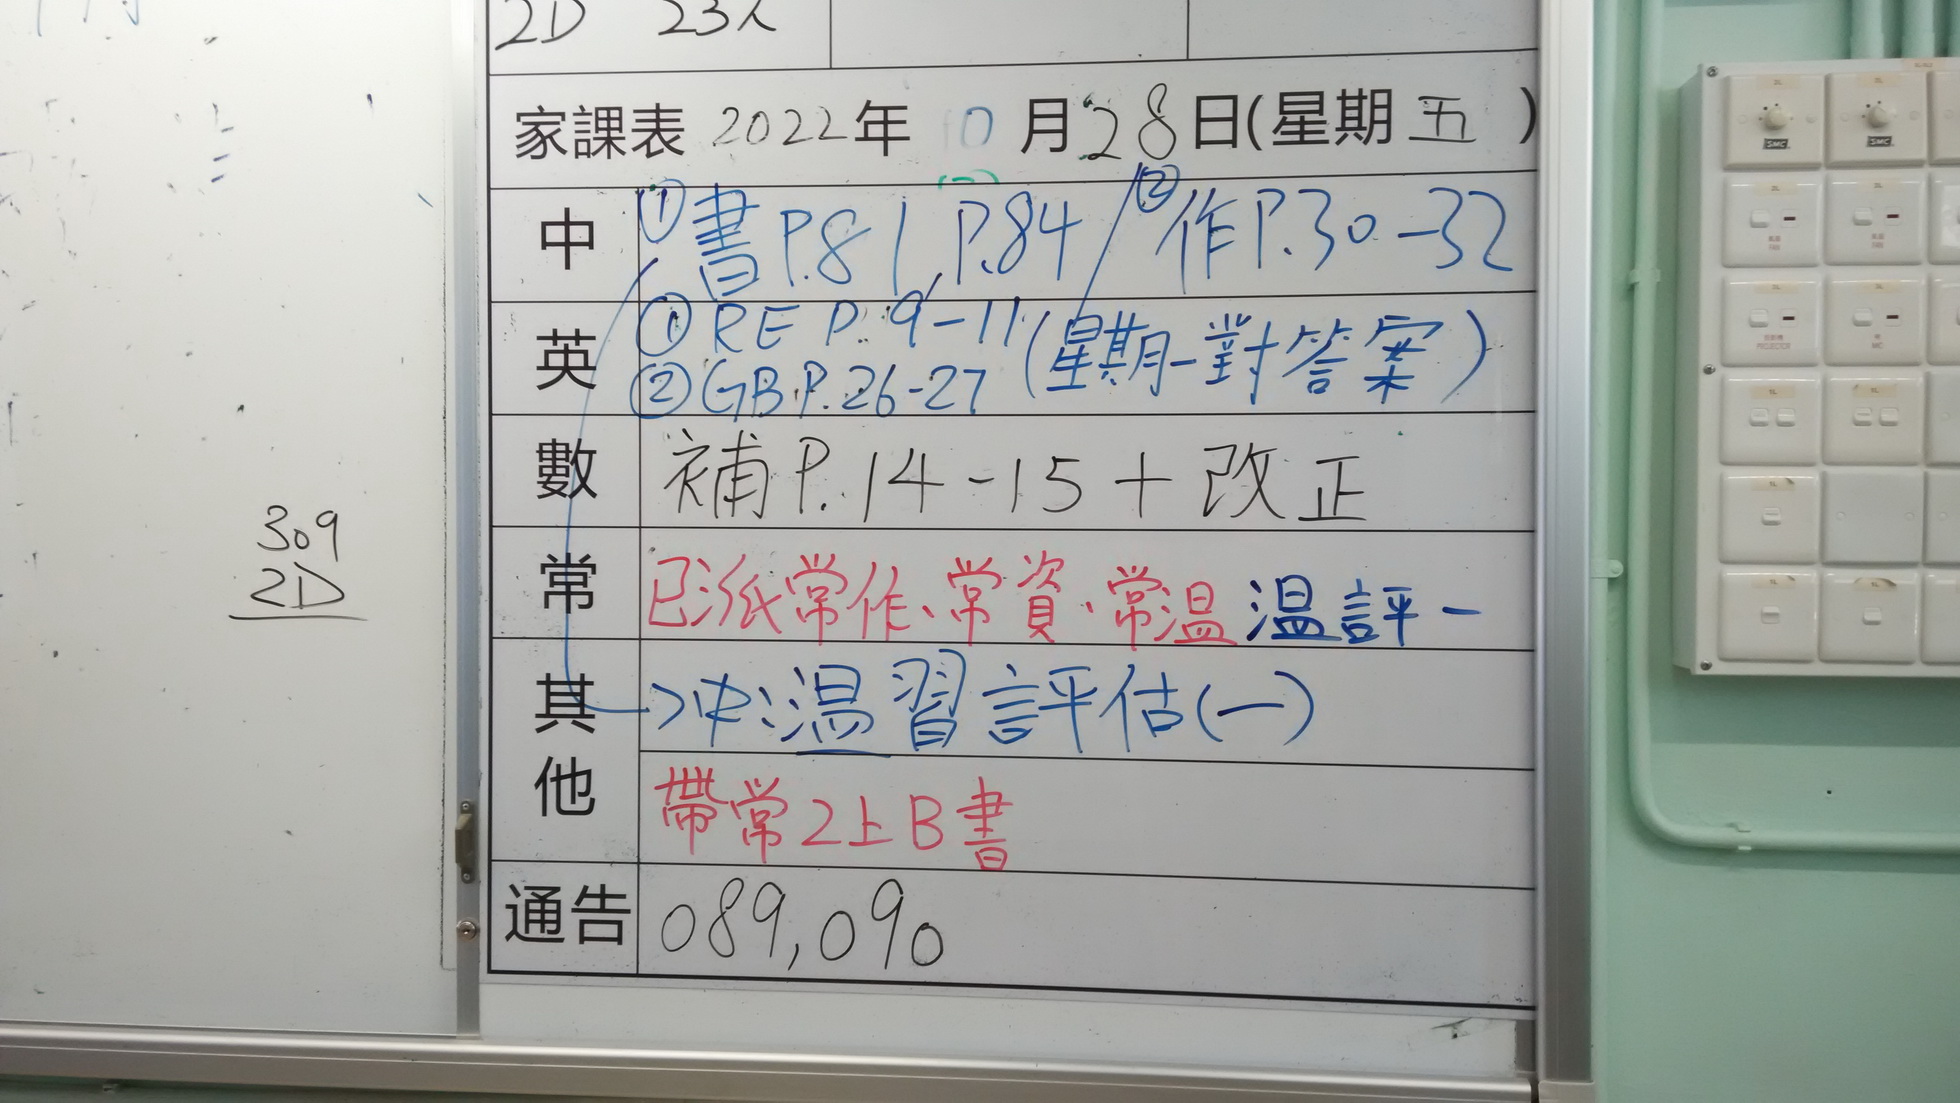 2D 23人
家課表 2022年 10月28日(星期五)
中 ①書P.81,P.84 / ②作P.30-32
英 ①RE P.9-11 (星期一對答案)
②GB P.26-27
數 補P.14-15+改正
常 已派常作、常資、常溫 溫評一
其他 →中:溫習評估(一)
帶常2上B書
通告 089,090
309
2D
SMC
SMC
FAN
FAN
PROJECTOR
MIC